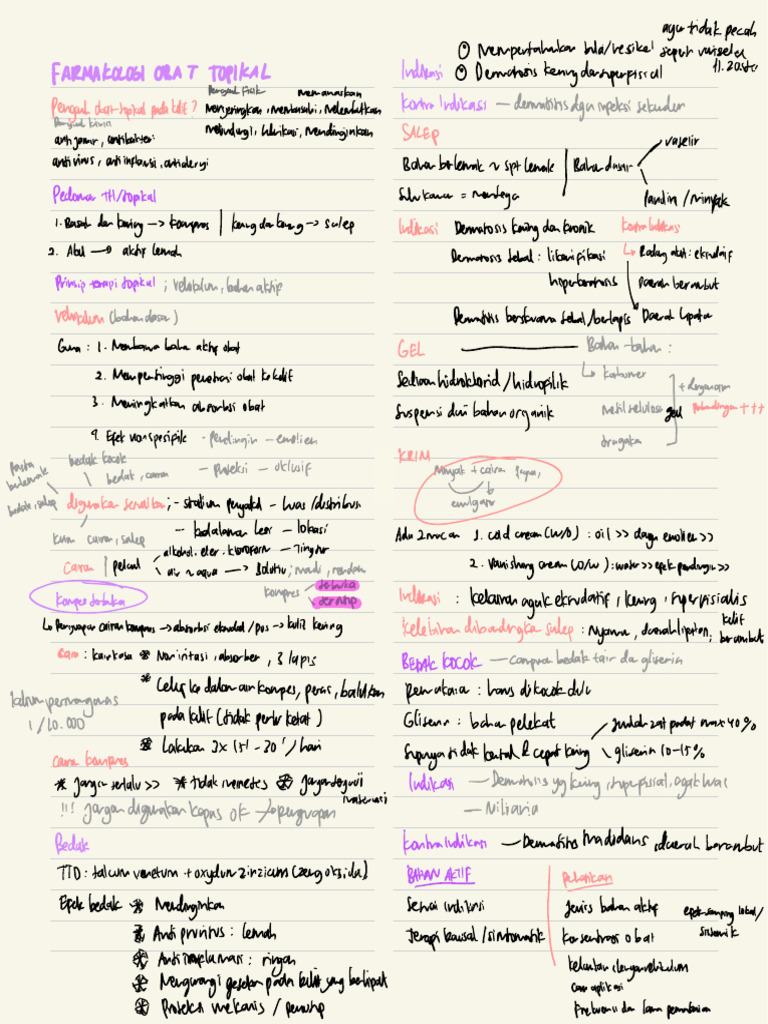 FARMAKOLOGI OBAT TOPIKAL
Pengaruh Fisik
memanaskan
Pengaruh obat topikal pada kulit? mengeringkan, membasahi, melembutkan
Pengaruh kimia
anti jamur, antibakteri melindungi, lubrikasi, mendinginkan
antivirus, antiinflamasi, antialergi
Pedoman TH/topikal
1. Basah dan kering → kompres | kering dan kering → salep
2. Akut → aktif lemah
Prinsip terapi topikal ; vehikulum, bahan aktif
Vehikulum (bahan dasar)
Guna : 1. Membawa bahan aktif obat
2. Mempertinggi penetrasi obat ke kulit
3. Meningkatkan absorbsi obat
4. Efek nonspesifik - Pendingin - emolien
- Proteksi - oklusif
pasta berlemak
bedak kocok
bedak, cairan
bedak, salep
krim cairan, salep
digunakan sesuai ; - stadium penyakit - luas/distribusi
- kedalaman lesi - lokasi
Cairan | pelarut alkohol, eter, kloroform - Tingtur
air ~ aqua → Solutio ; mandi, rendam
kompres terbuka
kompres terbuka
tertutup
↳ Penguapan cairan kompres → absorbsi eksudat/pus → kulit kering
Cara : kain kasa * Non iritasi, absorber, 3 lapis
* Celup ke dalam air kompres, peras, balutkan
pada kulit (tidak perlu ketat)
* Lakukan 3x 15' - 30'/hari
kalium permanganas
1/10.000
Cara kompres
* jangan terlalu >> * tidak menetes * jangan sampai
!!! jangan digunakan kapas ok penguapan
Bedak
TTD : talcum venetum + oxydum zinzicum (zeng oksida)
Efek bedak * Mendinginkan
* Anti pruritus : lemah
* Antiinflamasi : ringan
* Mengurangi gesekan pada kulit yang berlipat
* Proteksi mekanis / penutup
agar tidak pecah
Indikasi ○ Mempertahankan bula/vesikel seperti varisela
○ Dermatosis kering dan superfisial
Kontra Indikasi — dermatitis dgn infeksi sekunder
SALEP
Bahan berlemak ~ spt lemak | Bahan dasar vaselin
Suhu kamar = mentega lanolin / minyak
Indikasi Dermatosis kering dan kronik Kontra Indikasi
Dermatosis tebal : likenifikasi ↳ Radang akut : eksudatif
hiperkeratosis Daerah berambut
Dermatitis berskuama tebal/berlapis Daerah lipatan
GEL — Bahan-bahan :
Sediaan hidrokloroid / hidrofilik ↳ Karbomer
Suspensi dari bahan organik Metil selulosa
tragakan
gel
KRIM
Minyak + cairan
emulgator
Ada 2 macam 1. cold cream (W/O) : oil >> daya emolien >>
2. Vanishing cream (O/W) : water >> efek pendingin >>
Indikasi : kelainan agak eksudatif, kering, superfisialis
Kelebihan dibandingkan salep : Nyaman, daerah lipatan, kulit berambut
BEDAK KOCOK — campuran bedak & air dan gliserin
Pemakaian : harus dikocok dulu
Gliserin : bahan pelekat jumlah zat padat max 40%
Supaya tidak kental & cepat kering gliserin 10-15%
Indikasi — Dermatosis yg kering, superfisial, agak luas
— Miliaria
Kontra Indikasi — Dermatitis madidans, daerah berambut
BAHAN AKTIF
Sesuai indikasi
Terapi kausal/simtomatik
Perhatikan
Jenis bahan aktif
efek samping lokal/
sistemik
Konsentrasi obat
kelarutan dengan vehikulum
Cara aplikasi
Frekuensi dan lama pemakaian